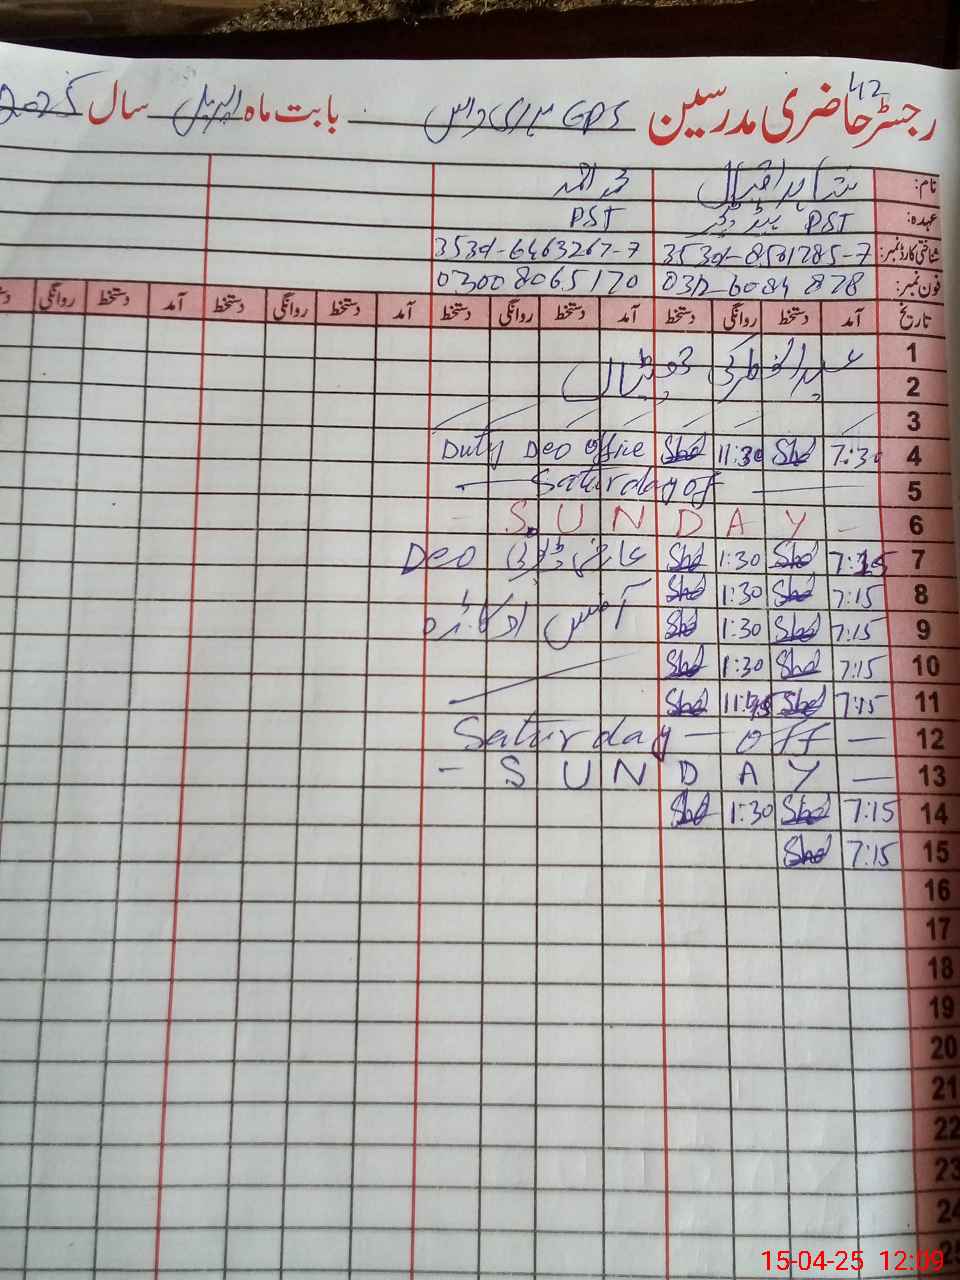 42
رجسٹر حاضری مدرسین GPS بابت ماہ اپریل سال 2025
نام: شاہد اقبال محمد احمد
عہدہ: PST ہیڈ ٹیچر PST
شناختی کارڈ نمبر: 7-6463267-3530
فون نمبر: 0312-6084 878 0300 8065170
تاریخ آمد دستخط روانگی دستخط آمد دستخط روانگی دستخط آمد دستخط روانگی دستخط آمد دستخط روانگی
1 عید الفطر کی
2
3
4 7:30 Shd 11:30 Shd Duty Deo office
5 Saturday off
6 SUNDAY
7 7:15 Shd 1:30 Shd عارضی ڈیوٹی Deo
8 7:15 Shd 1:30 Shd
9 7:15 Shd 1:30 Shd آفس اوکاڑہ
10 7:15 Shd 1:30 Shd
11 7:15 Shd 11:45 Shd
12 Saturday - off -
13 - SUNDAY -
14 7:15 Shd 1:30 Shd
15 7:15 Shd
16
17
18
19
20
21
22
23
24
25
15-04-25 12:09